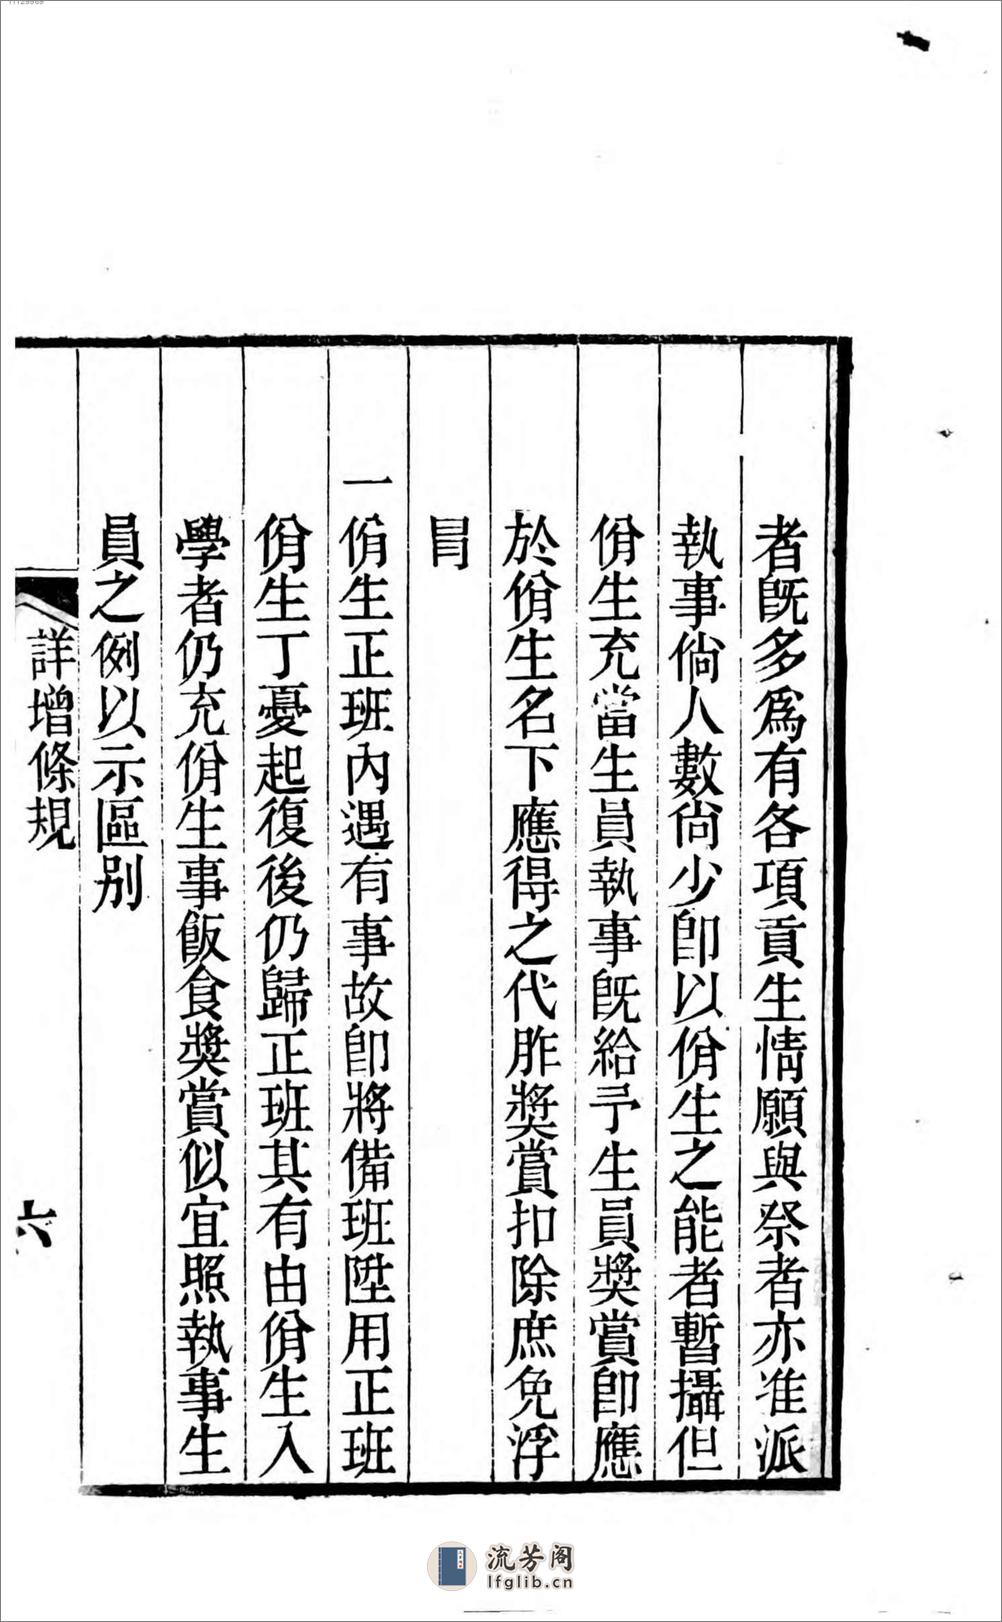 者旣多爲有各項貢生情願與祭者亦准派
執事倘人數尙少卽以佾生之能者暫攝但
佾生充當生員執事旣給予生員奬賞卽應
於佾生名下應得之代胙奬賞扣除庶免浮
冒
一佾生正班內遇有事故卽將備班陞用正班
佾生丁憂起復後仍歸正班其有由佾生入
學者仍充佾生事飯食奬賞似宜照執事生
員之例以示區别
詳增條規
六
流芳阁
lfglib.cn
11129969